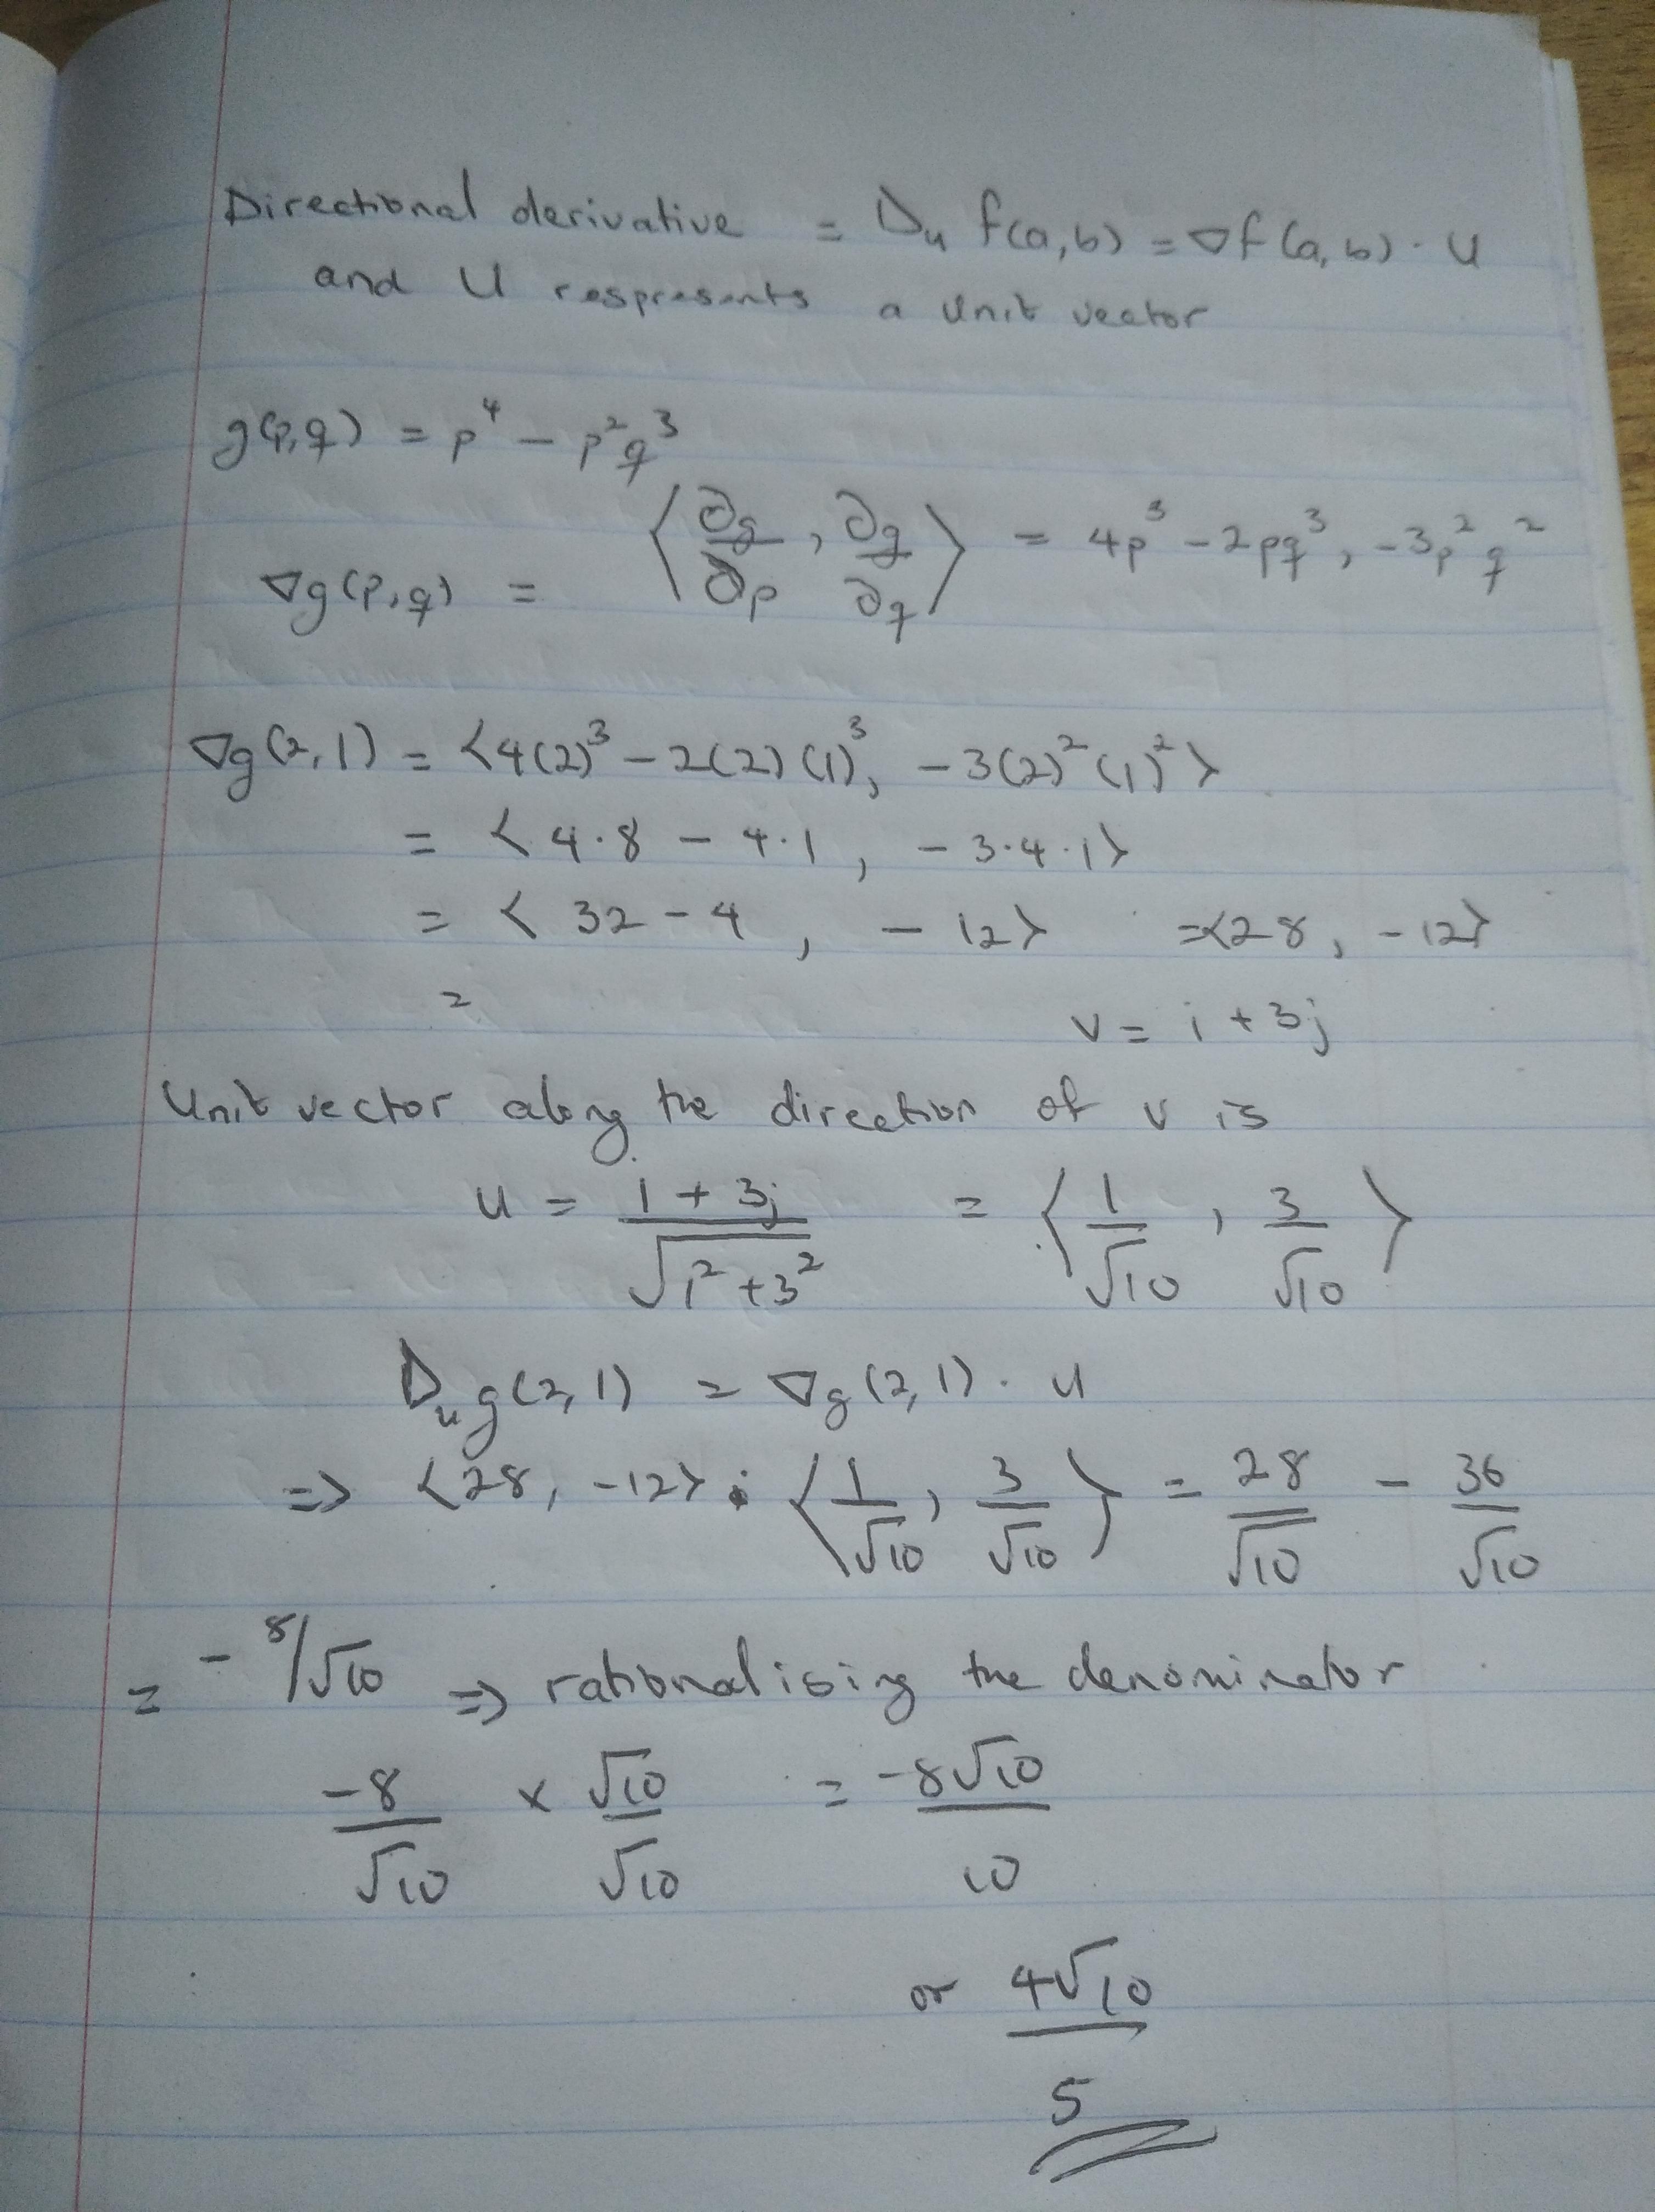 Directional derivative = Du f(a,b) = ∇f(a,b) · u
and u respresents a unit vector
g(p,q) = p⁴ - p²q³
∇g(p,q) = ⟨∂g/∂p, ∂g/∂q⟩ = 4p³ - 2pq³, -3p²q²
∇g(2,1) = <4(2)³ - 2(2)(1)³, -3(2)²(1)²>
= <4·8 - 4·1, -3·4·1>
= <32 - 4, -12> =<28, -12>
= v = i + 3j
Unit vector along the direction of v is
u = 1 + 3j/√1² + 3² = ⟨1/√10, 3/√10⟩
Du g(2,1) = ∇g(2,1) · u
=> <28, -12> · ⟨1/√10, 3/√10⟩ = 28/√10 - 36/√10
= -8/√10 => rationalising the denominator
-8/√10 × √10/√10 = -8√10/10
or 4√10/5